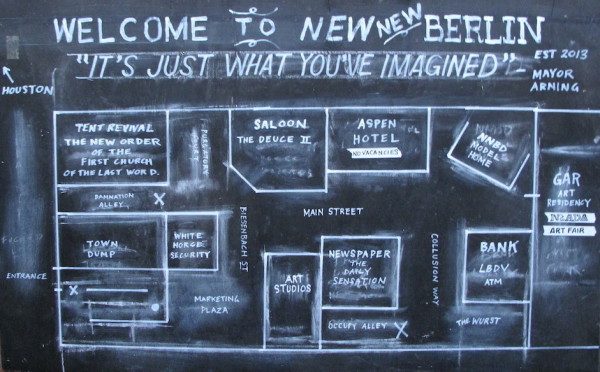 WELCOME TO NEW NEW BERLIN
"IT'S JUST WHAT YOU'VE IMAGINED"
EST 2013
MAYOR
ARNING.
HOUSTON
TENT REVIVAL
THE NEW ORDER
OF THE
FIRST CHURCH
OF THE LAST WORD.
PURGATORY
COURT
SALOON
THE DEUCE II
ASPEN
HOTEL
NO VACANCIES
NNBD
MODEL
HOME
GAR
ART
RESIDENCY
NEADA
ART FAIR
DAMNATION
ALLEY
X
MAIN STREET
TOWN
DUMP
WHITE
HORSE
SECURITY
BIESENBACH
ST
ART
STUDIOS
NEWSPAPER
THE
DAILY
SENSATION
COLLUSION WAY
BANK
LBDV
ATM
ENTRANCE
X
MARKETING
PLAZA
OCCUPY ALLEY
X
THE WURST